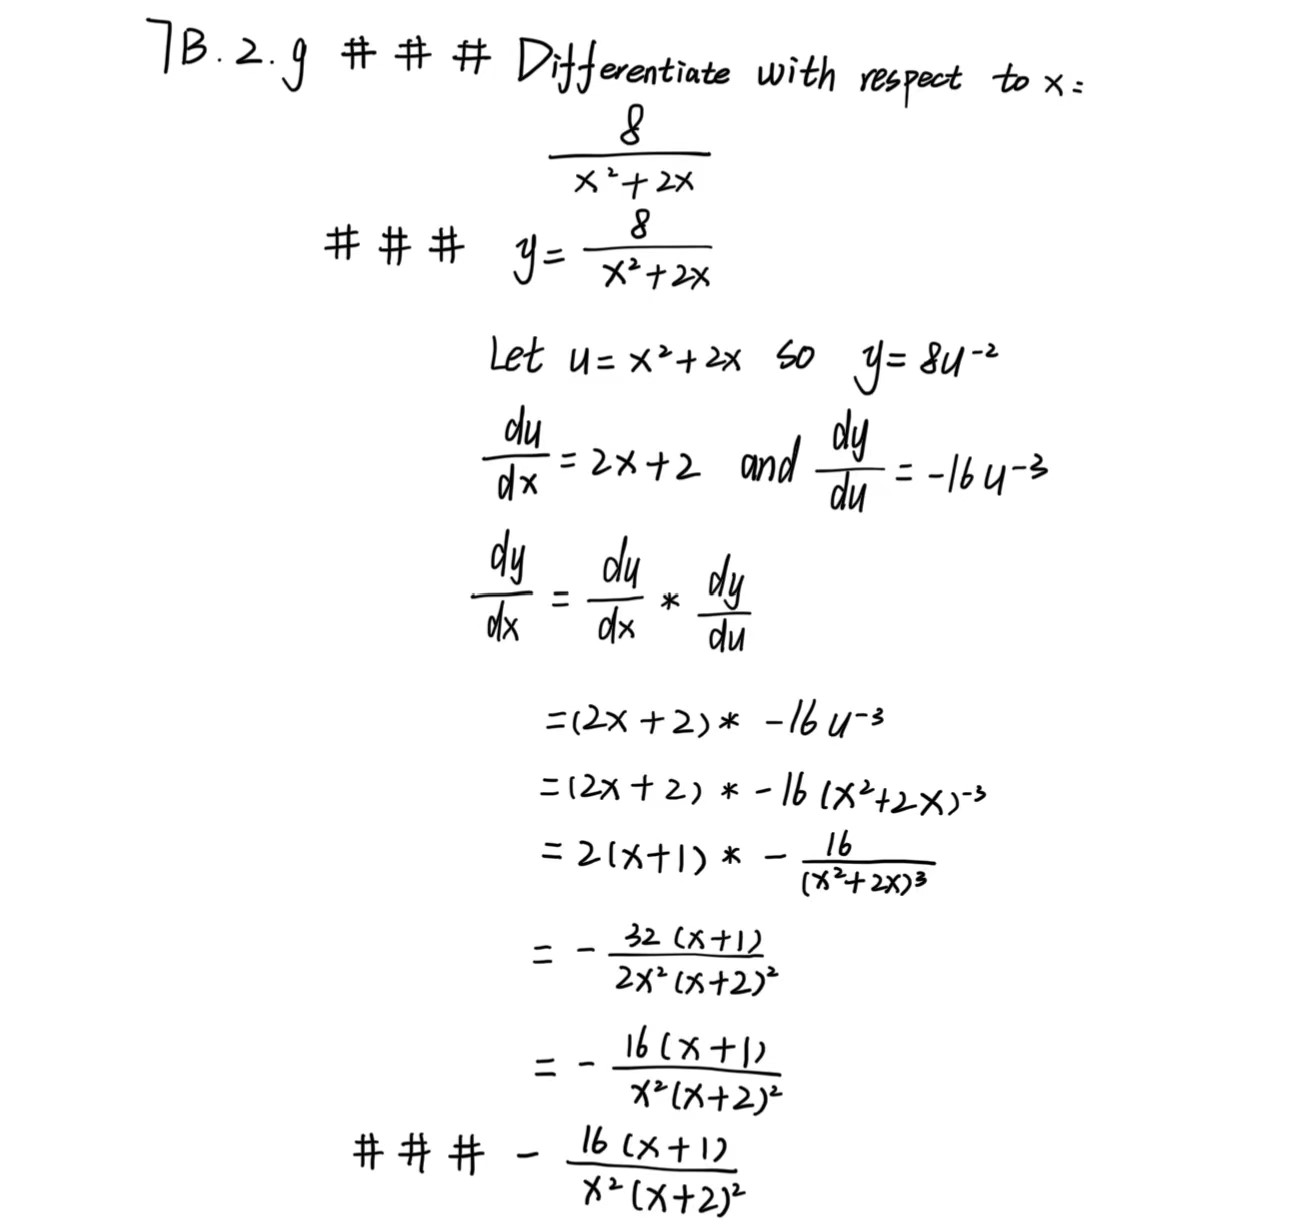 7B.2.g # # # Differentiate with respect to x:
\frac{8}{x^2+2x}
# # # y = \frac{8}{x^2+2x}
Let u = x^2+2x so y = 8u^{-2}
\frac{du}{dx} = 2x+2 and \frac{dy}{du} = -16u^{-3}
\frac{dy}{dx} = \frac{du}{dx} * \frac{dy}{du}
= (2x+2) * -16u^{-3}
= (2x+2) * -16(x^2+2x)^{-3}
= 2(x+1) * -\frac{16}{(x^2+2x)^3}
= -\frac{32(x+1)}{2x^2(x+2)^2}
= -\frac{16(x+1)}{x^2(x+2)^2}
# # # -\frac{16(x+1)}{x^2(x+2)^2}